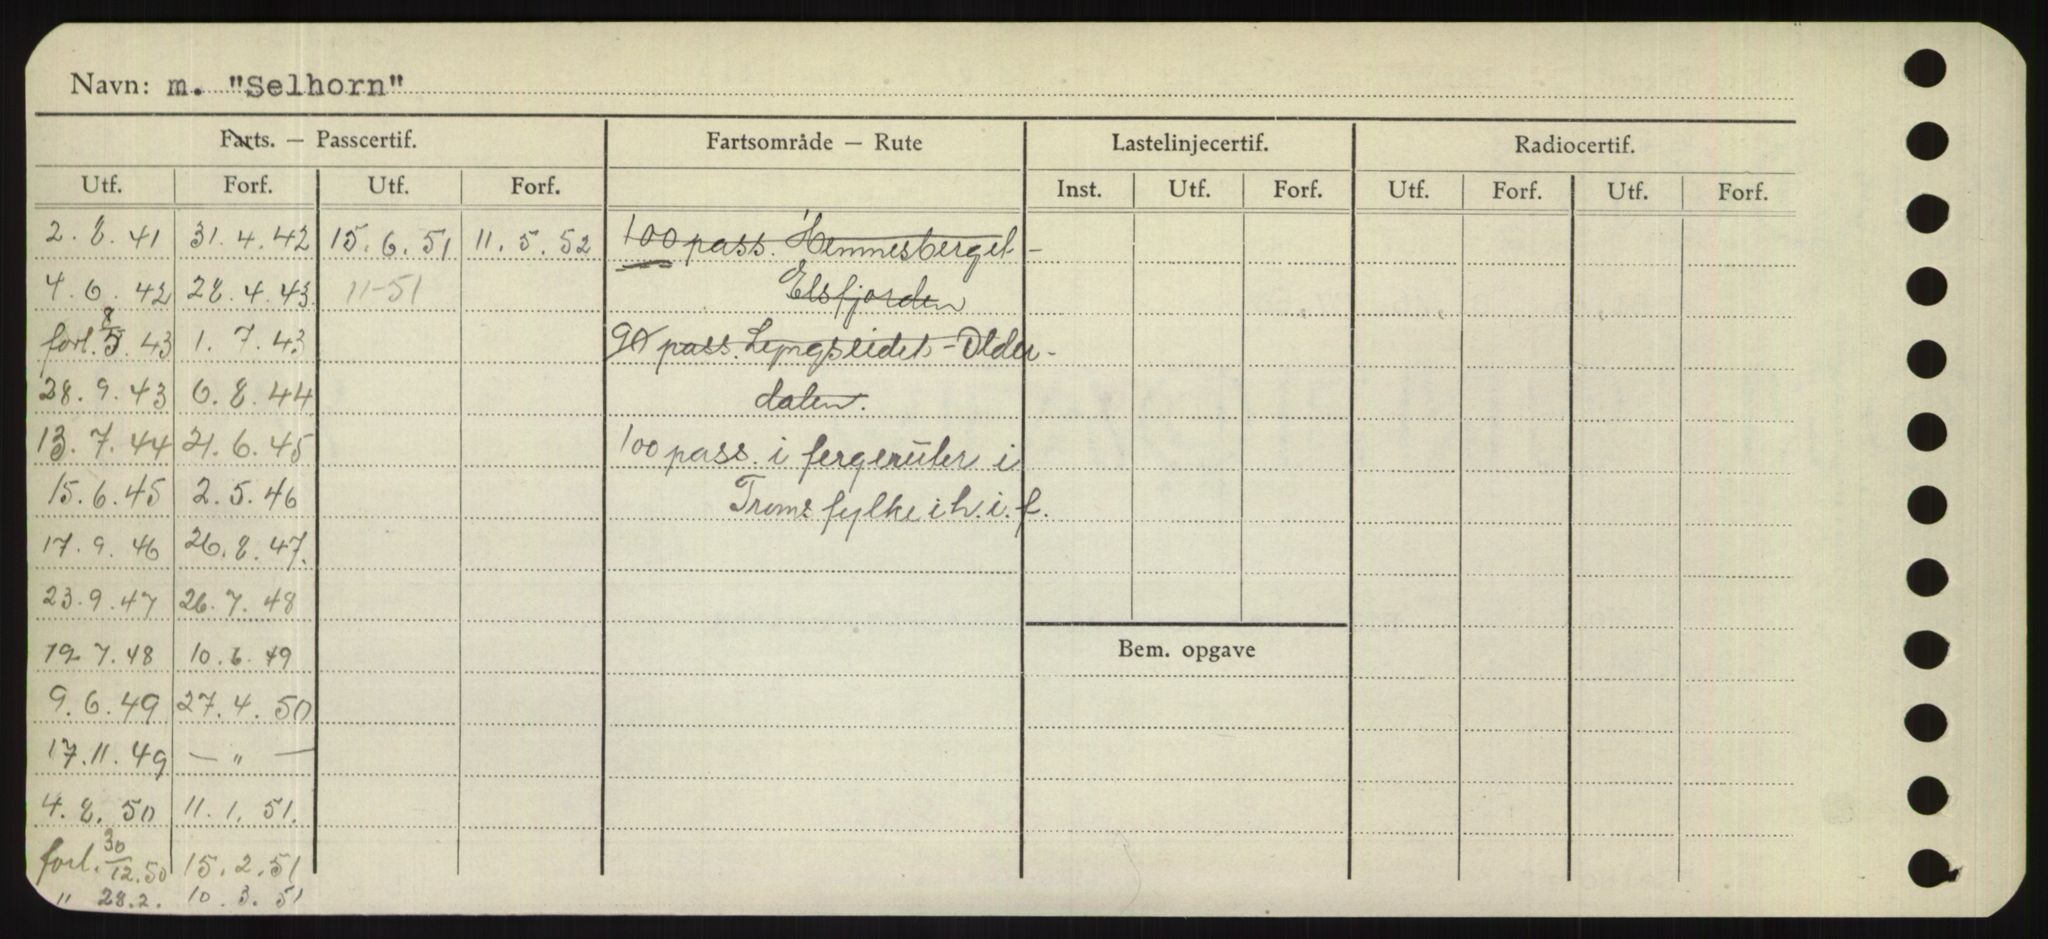 Navn: m. "Selhorn"
Farts. — Passcertif. Fartsområde — Rute Lastelinjecertif. Radiocertif.
Utf. Forf. Utf. Forf. Inst. Utf. Forf. Utf. Forf. Utf. Forf.
2.8.41 31.4.42 15.6.51 11.5.52 100 pass. Hemnesberget -
4.6.42 28.4.43 11-51 Elsfjorden
forl. 8/5.43 1.7.43 90 pass. Lyngseidet - Older-
28.9.43 6.8.44 dalen.
13.7.44 21.6.45 100 pass. i fergeruter i
15.6.45 2.5.46 Troms fylke i h. i. f.
17.9.46 26.8.47.
23.9.47 26.7.48
19.7.48 10.6.49
Bem. opgave
9.6.49 27.4.50
17.11.49 — " —
4.8.50 11.1.51.
forl. 30/12.50 15.2.51
" 28.2. 10.3.51